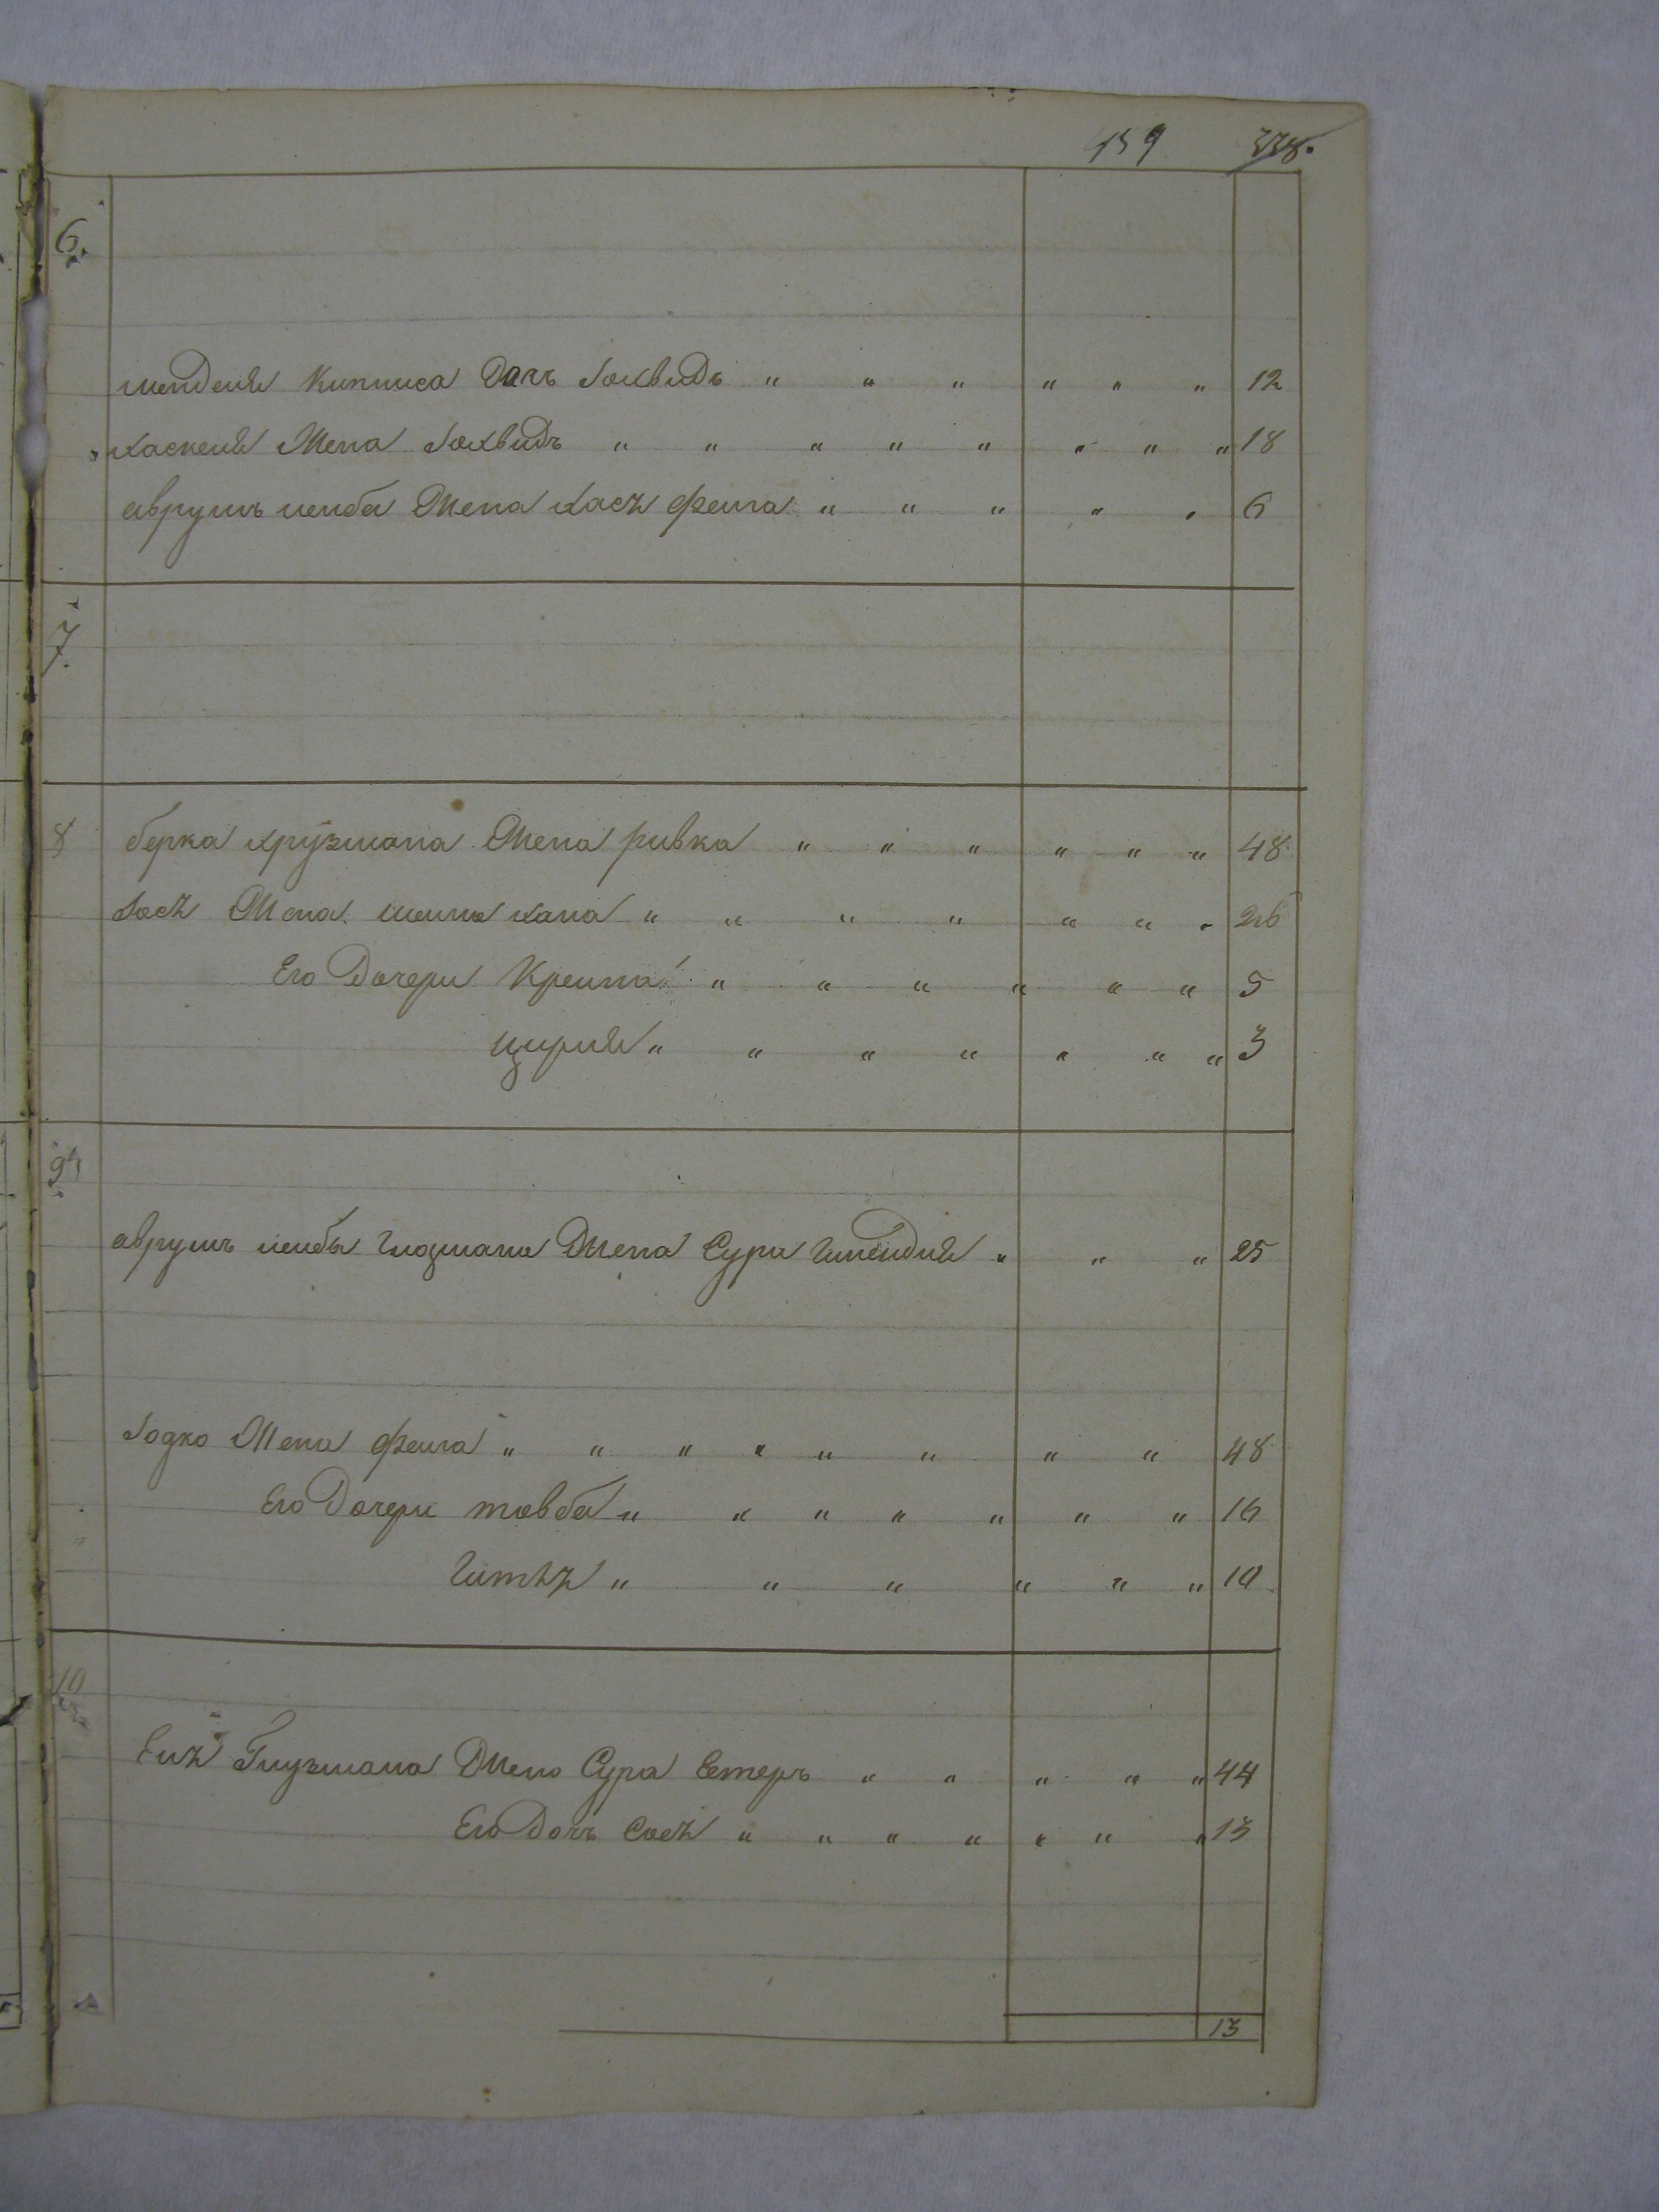 159 338.
6.
менделя Киписа дочь Іохвидъ " " " " " " 12
хаскеля Жена Іохвидъ " " " " " " " " 18
аврумъ лейба Жена хася Фейга " " " " " 6
7.
8 берка крузмана Жена ривка " " " " " " 48
Іося Жена хана " " " " " " " 26
Его Дочери Крейна " " " " " " 5
Цирля " " " " " " " 3
9
аврумъ лейбы Глозмана Жена Сура " " " 25
Іодко Жена Фейга " " " " " " " " 48
Его Дочери товба " " " " " " " 16
Гитля " " " " " " 10
10
Глузмана Жена Сура Естеръ " " " " " 44
Его Дочь Сося " " " " " " " 13
13